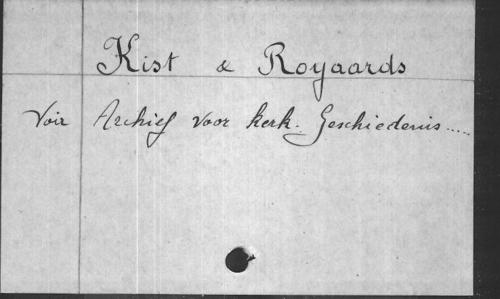 Kist & Royaards
Voir Archief voor kerk. Geschiedenis.....